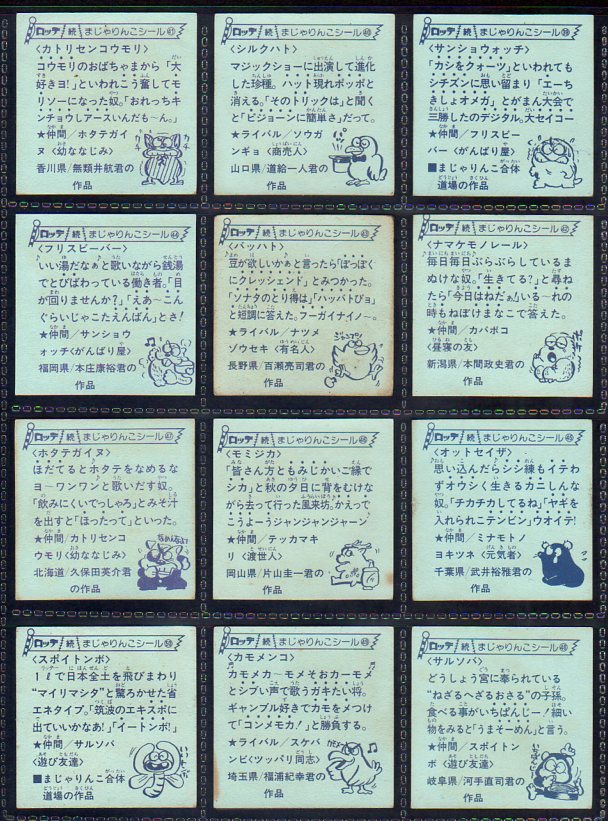 ロッテ 続 まじゃりんこシール 41
〈カトリセンコウモリ〉
コウモリのおばちゃまから「大
好きヨ!」といわれこう奮してモ
リソーになった奴。「おれっちキ
ンチョウしアースいんだも〜ん。」
★仲間/ホタテガイ
ヌ〈幼ななじみ〉
香川県/無類井航君の
作品
ロッテ 続 まじゃりんこシール 40
〈シルクハト〉
マジックショーに出演して進化
した珍種。ハット現れポッポと
消える。「そのトリックは」と聞く
と「ピジョーンに簡単さ」だって。
★ライバル/ソウガ
ンギョ〈商売人〉
山口県/道給一人君の
作品
ロッテ 続 まじゃりんこシール 39
〈サンショウォッチ〉
「カシをクォーツ」といわれても
シチズンに思い留まり「エーち
きしょオメガ」とがまん大会で
三勝したのデジタル。大セイコー
★仲間/フリスビー
バー〈がんばり屋〉
■まじゃりんこ合体
道場の作品
ロッテ 続 まじゃりんこシール 44
〈フリスビーバー〉
♪いい湯だなぁと歌いながら銭湯
でとびばわっている働き者。「目
が回りませんか?」「えあ〜こん
ぐらいじゃこたえんばん」とさ!
★仲間/サンショウ
ォッチ〈がんばり屋〉
福岡県/本庄康裕君の
作品
ロッテ 続 まじゃりんこシール 43
〈バッハト〉
豆が欲しいかぁと言ったら「ぽっぽく
にクレッシェンド」とみつかった。
「ソナタのとり得は」「ハッバトびョ」
と短調に答えた。フーガイナイノ〜。
★ライバル/ナツメ
ゾウセキ〈有名人〉
長野県/百瀬亮司君の
作品
ロッテ 続 まじゃりんこシール 42
〈ナマケモノレール〉
♪毎日毎日ぶらぶらしているま
ぬけな奴。「生きてる?」と尋ね
たら「今日はねだぁいる〜れの
時もねぼけまなこで答えた。
★仲間/カバボコ
〈昼寝の友〉
新潟県/本間政史君の
作品
ロッテ 続 まじゃりんこシール 47
〈ホタテガイヌ〉
ほだてるとホタテをなめるな
ヨーワンワンと歌いだす奴。
「飲みにくいでっしゃろ」とみそ汁
を出すと「ほったって」といった。
★仲間/カトリセンコ
ウモリ〈幼ななじみ〉
北海道/久保田英介君
の作品
ロッテ 続 まじゃりんこシール 46
〈モミジカ〉
「皆さん方ともみじかいご縁で
シカ」と秋の夕日に背をむけな
がら去って行った風来坊。かえって
こうよーうジャンジャンジャーン
★仲間/テッカマキ
リ〈渡世人〉
岡山県/片山圭一君の
作品
ロッテ 続 まじゃりんこシール 45
〈オットセイザ〉
♪思い込んだらシシ練もイテわ
ずオウシく生きるカニしんな
奴。「チカチカしてるね」「ヤギを
入れられニテンビン」ウオイテ!
★仲間/ミナモトノ
ヨキツネ〈元気者〉
千葉県/武井裕雅君の
作品
ロッテ 続 まじゃりんこシール 50
〈スポイトンボ〉
1ℓで日本全土を飛びまわり
“マイリマシタ”と驚ろかせた省
エネタイプ。「筑波のエキスポに
出ていいかなあ!」「イートンボ!」
★仲間/サルソバ
〈遊び友達〉
■まじゃりんこ合体
道場の作品
ロッテ 続 まじゃりんこシール 49
〈カモメンコ〉
♪カモメカ〜モメそおカーモメ
とシブい声で歌うガキたい将。
ギャンブル好きでカモをメつけ
て「コンメモカ!」と勝負する。
★ライバル/スケバ
ンビ〈ツッパリ同志〉
埼玉県/福浦紀幸君の
作品
ロッテ 続 まじゃりんこシール 48
〈サルソバ〉
どうしょう宮に奉られている
“ねざるへざるおさる”の子孫。
食べる事がいちばんじー!細い
物をみると「うまそーめん」と言う。
★仲間/スポイトン
ボ〈遊び友達〉
岐阜県/河手直司君の
作品